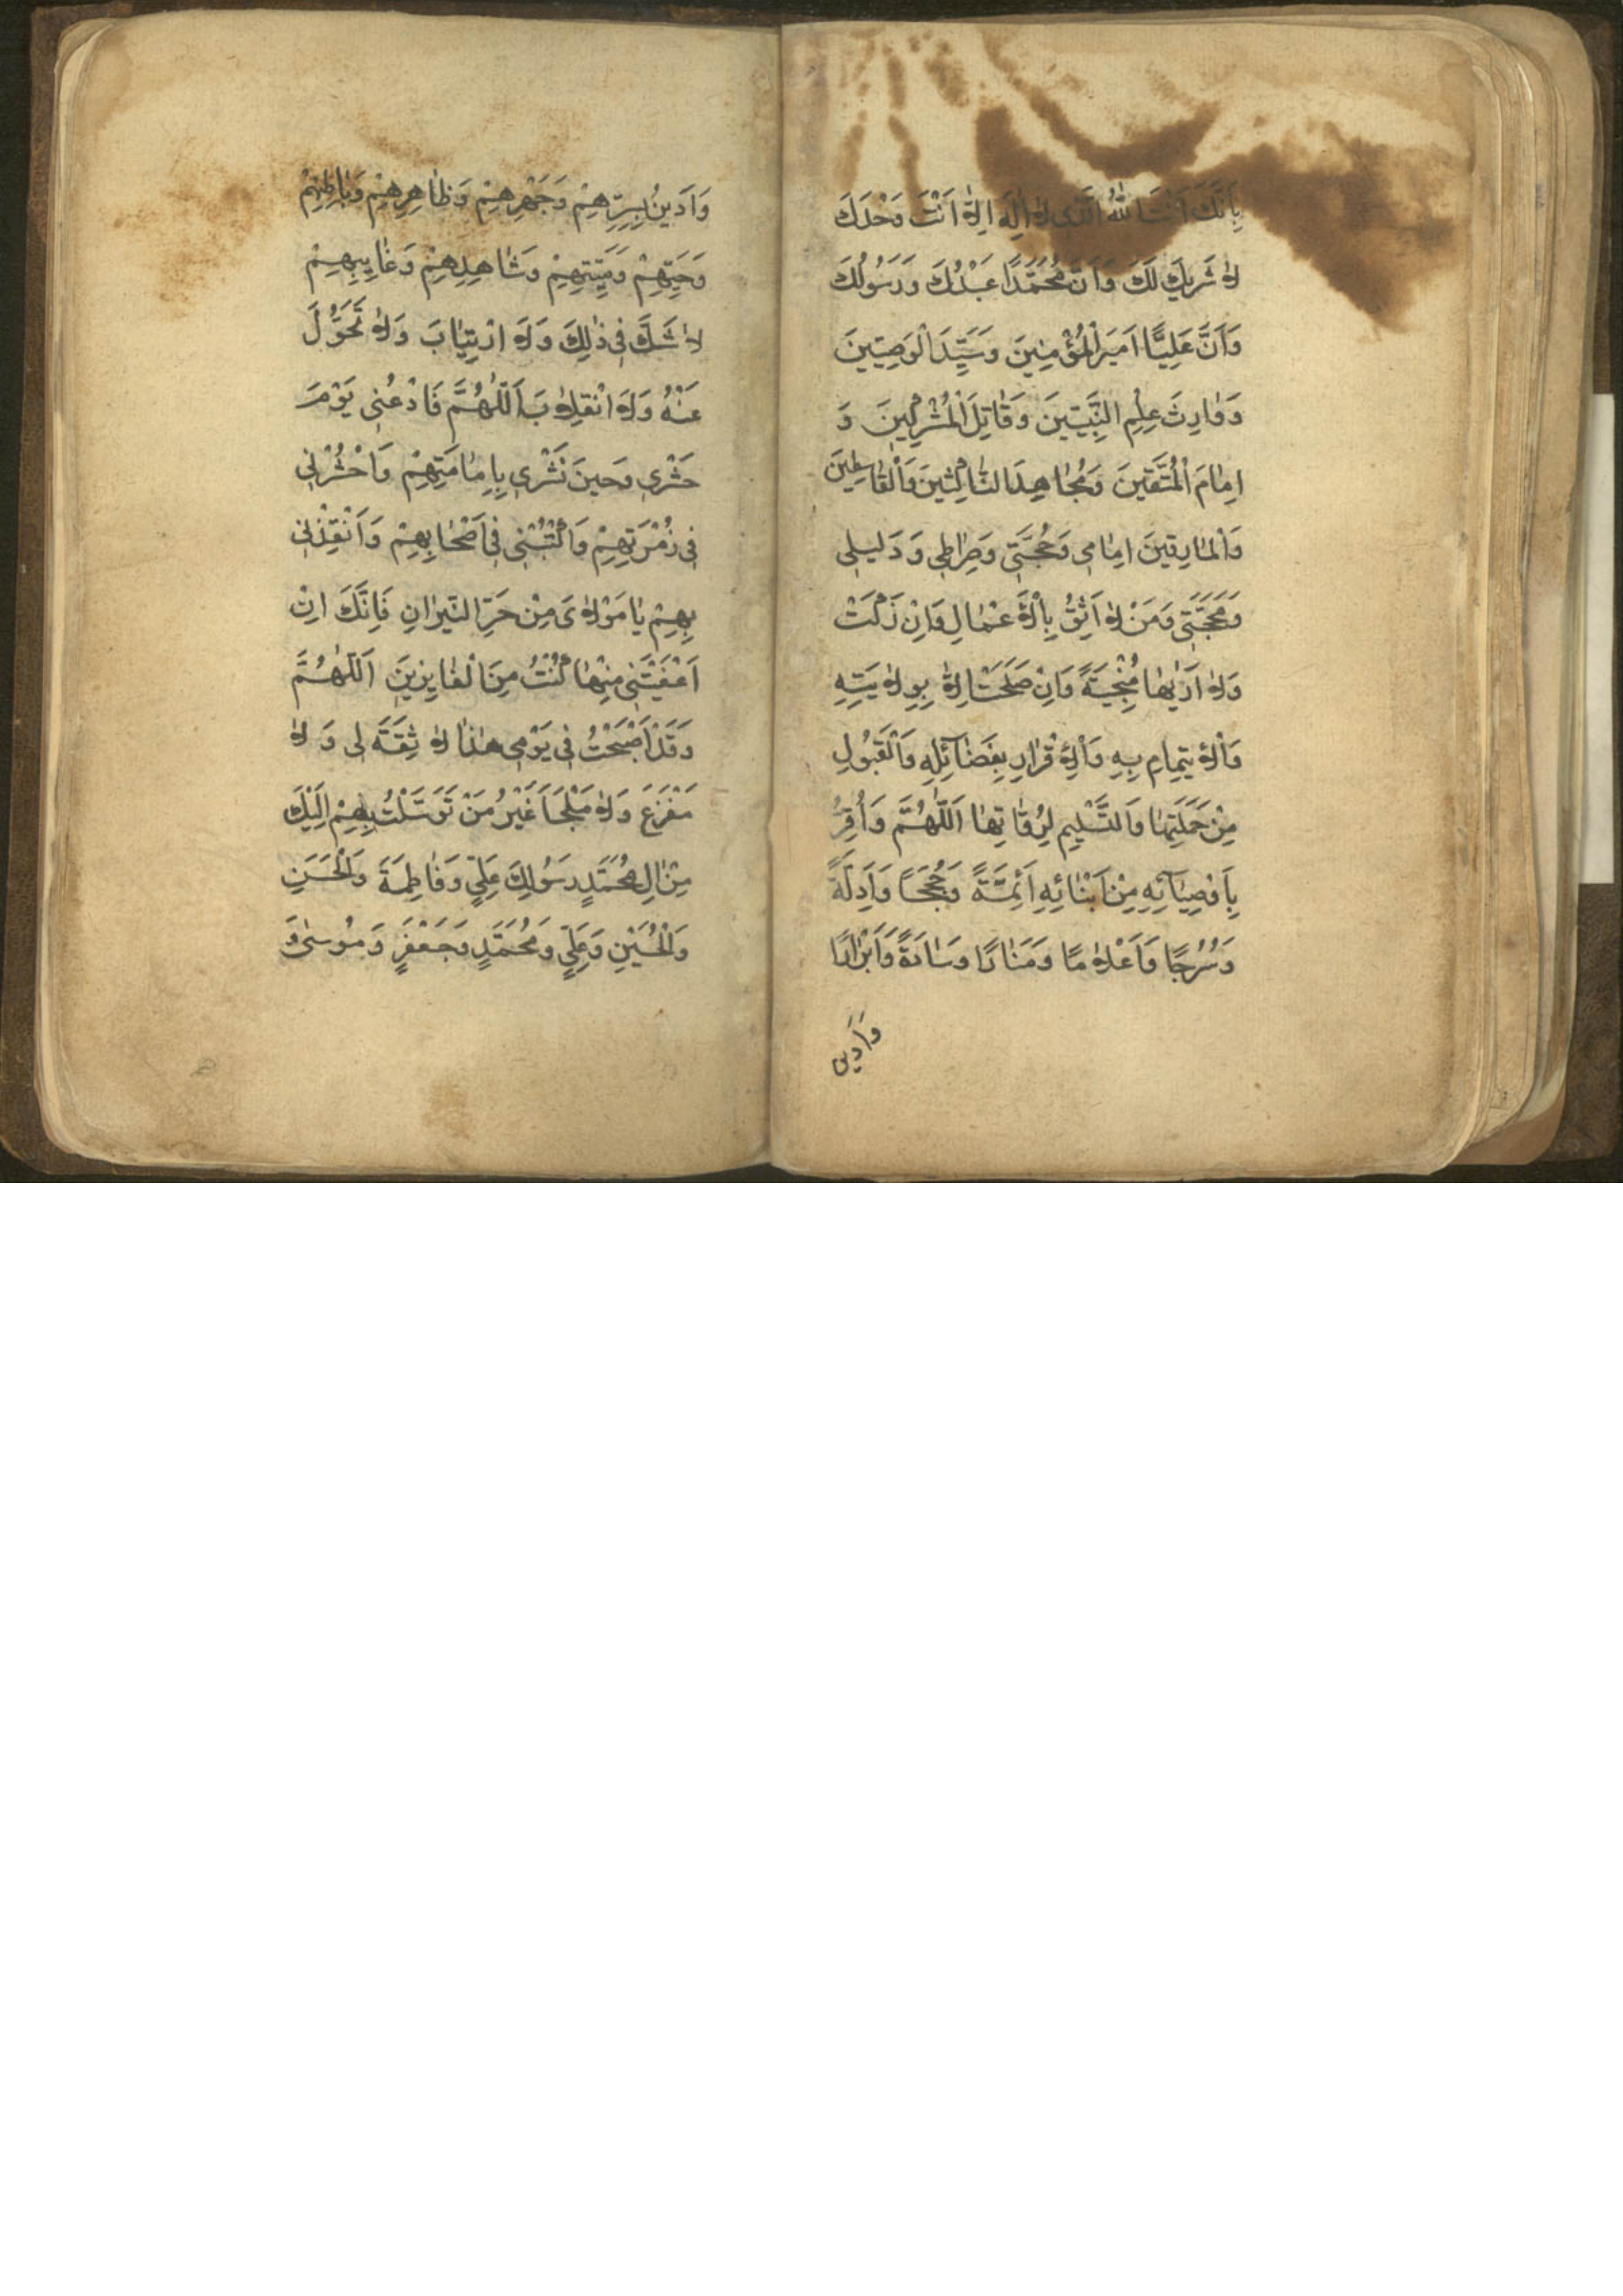 بِاَنَّكَ اَنْتَ اللهُ الَّذى لاٰ اِلٰهَ اِلاّٰ اَنْتَ وَحْدَكَ
لاٰ شَرِيكَ لَكَ وَاَنَّ مُحَمَّدًا عَبْدُكَ وَرَسُولُكَ
وَاَنَّ عَلِيًّا اَمِيرَ الْمُؤْمِنِينَ وَسَيِّدَ الْوَصِيّينَ
وَوٰارِثَ عِلْمِ النَّبِيّينَ وَقٰاتِلَ الْمُشْرِكِينَ وَ
اِمٰامَ الْمُتَّقِينَ وَمُجٰاهِدَ النّٰاكِثِينَ وَالْقٰاسِطِينَ
وَالْمٰارِقِينَ اِمٰامِى وَحُجَّتِى وَصِرٰاطِى وَدَلِيلِى
وَمَحَجَّتِى وَمَنْ لاٰ اَثِقُ بِالْاَعْمٰالِ وَاِنْ زَكَتْ
وَلاٰ اَرٰيهٰا مُنْجِيَةً وَاِنْ صَلَحَتْ اِلاّٰ بِوِلاٰيَتِهِ
وَالْاِيتِمٰامِ بِهِ وَالْاِقْرٰارِ بِفَضٰائِلِهِ وَالْقَبُولِ
مِنْ حَمَلَتِهٰا وَالتَّسْلِيمِ لِرُوٰاتِهٰا اَللّٰهُمَّ وَاُقِرُّ
بِاَوْصِيٰآئِهِ مِنْ اَبْنٰائِهِ اَئِمَّةً وَحُجَجًا وَاَدِلَّةً
وَسُرُجًا وَاَعْلاٰمًا وَمَنٰارًا وَسٰادَةً وَاَبْرٰارًا
وَاَدينُ
وَاَدينُ بِسِرِّهِمْ وَجَهْرِهِمْ وَظٰاهِرِهِمْ وَبٰاطِنِهِمْ
وَحَيِّهِمْ وَمَيِّتِهِمْ وَشٰاهِدِهِمْ وَغٰايِبِهِمْ
لاٰ شَكَّ فِى ذٰلِكَ وَلاَ ارْتِيٰابَ وَلاٰ تَحَوُّلَ
عَنْهُ وَلاَ انْقِلاٰبَ اَللّٰهُمَّ فَادْعُنِى يَوْمَ
حَشْرِى وَحِينَ نَشْرِى بِاِمٰامَتِهِمْ وَاحْشُرْنِى
فِى زُمْرَتِهِمْ وَاكْتُبْنِى فِى اَصْحٰابِهِمْ وَاَنْقِذْنِى
بِهِمْ يٰا مَوْلاٰىَ مِنْ حَرِّ النّيرٰانِ فَاِنَّكَ اِنْ
اَعْفَيْتَنِى مِنْهٰا كُنْتُ مِنَ الْفٰايِزِينَ اَللّٰهُمَّ
وَقَدْ اَصْبَحْتُ فِى يَوْمِى هٰذٰا لاٰ ثِقَةَ لِى وَلاٰ
مَفْزَعَ وَلاٰ مَلْجَاَ غَيْرُ مَنْ تَوَسَّلْتُ بِهِمْ اِلَيْكَ
مِنْ اٰلِ مُحَمَّدٍ رَسُولِكَ عَلِىٍّ وَفٰاطِمَةَ وَالْحَسَنِ
وَالْحُسَيْنِ وَعَلِىٍّ وَمُحَمَّدٍ وَجَعْفَرٍ وَمُوسٰى وَ